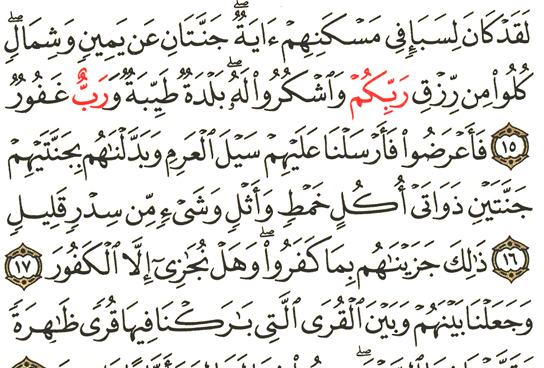 لَقَدْ كَانَ لِسَبَإٍ فِى مَسْكَنِهِمْ ءَايَةٌ ۖ جَنَّتَانِ عَن يَمِينٍ وَشِمَالٍ ۖ
كُلُوا۟ مِن رِّزْقِ رَبِّكُمْ وَٱشْكُرُوا۟ لَهُۥ ۚ بَلْدَةٌ طَيِّبَةٌ وَرَبٌّ غَفُورٌ
١٥ فَأَعْرَضُوا۟ فَأَرْسَلْنَا عَلَيْهِمْ سَيْلَ ٱلْعَرِمِ وَبَدَّلْنَٰهُم بِجَنَّتَيْهِمْ
جَنَّتَيْنِ ذَوَاتَىْ أُكُلٍ خَمْطٍ وَأَثْلٍ وَشَىْءٍ مِّن سِدْرٍ قَلِيلٍ
١٦ ذَٰلِكَ جَزَيْنَٰهُم بِمَا كَفَرُوا۟ ۖ وَهَلْ نُجَٰزِىٓ إِلَّا ٱلْكَفُورَ ١٧
وَجَعَلْنَا بَيْنَهُمْ وَبَيْنَ ٱلْقُرَى ٱلَّتِى بَٰرَكْنَا فِيهَا قُرًى ظَٰهِرَةً